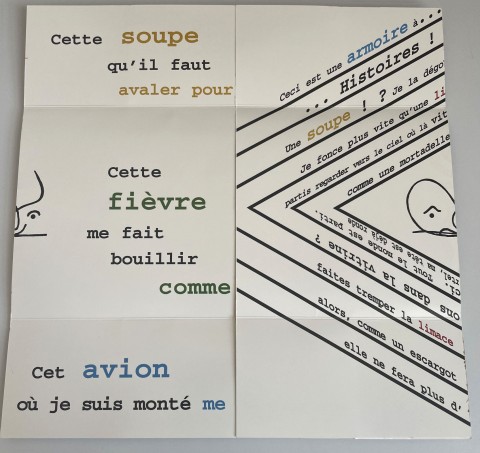 Cette soupe
qu'il faut
avaler pour
Cette
fièvre
me fait
bouillir
comme
Cet avion
où je suis monté me
Ceci est une armoire à...
... Histoires !
Une soupe ! ? Je la dégo
Je fonce plus vite qu'une li
partis regarder vers le ciel où là vit
comme une mortadelle
ma tête est déjà ronde
ci. Tout le monde est parti.
ons dans la vitrine ?
faites tremper la limace
alors, comme un escargot
elle ne fera plus d'